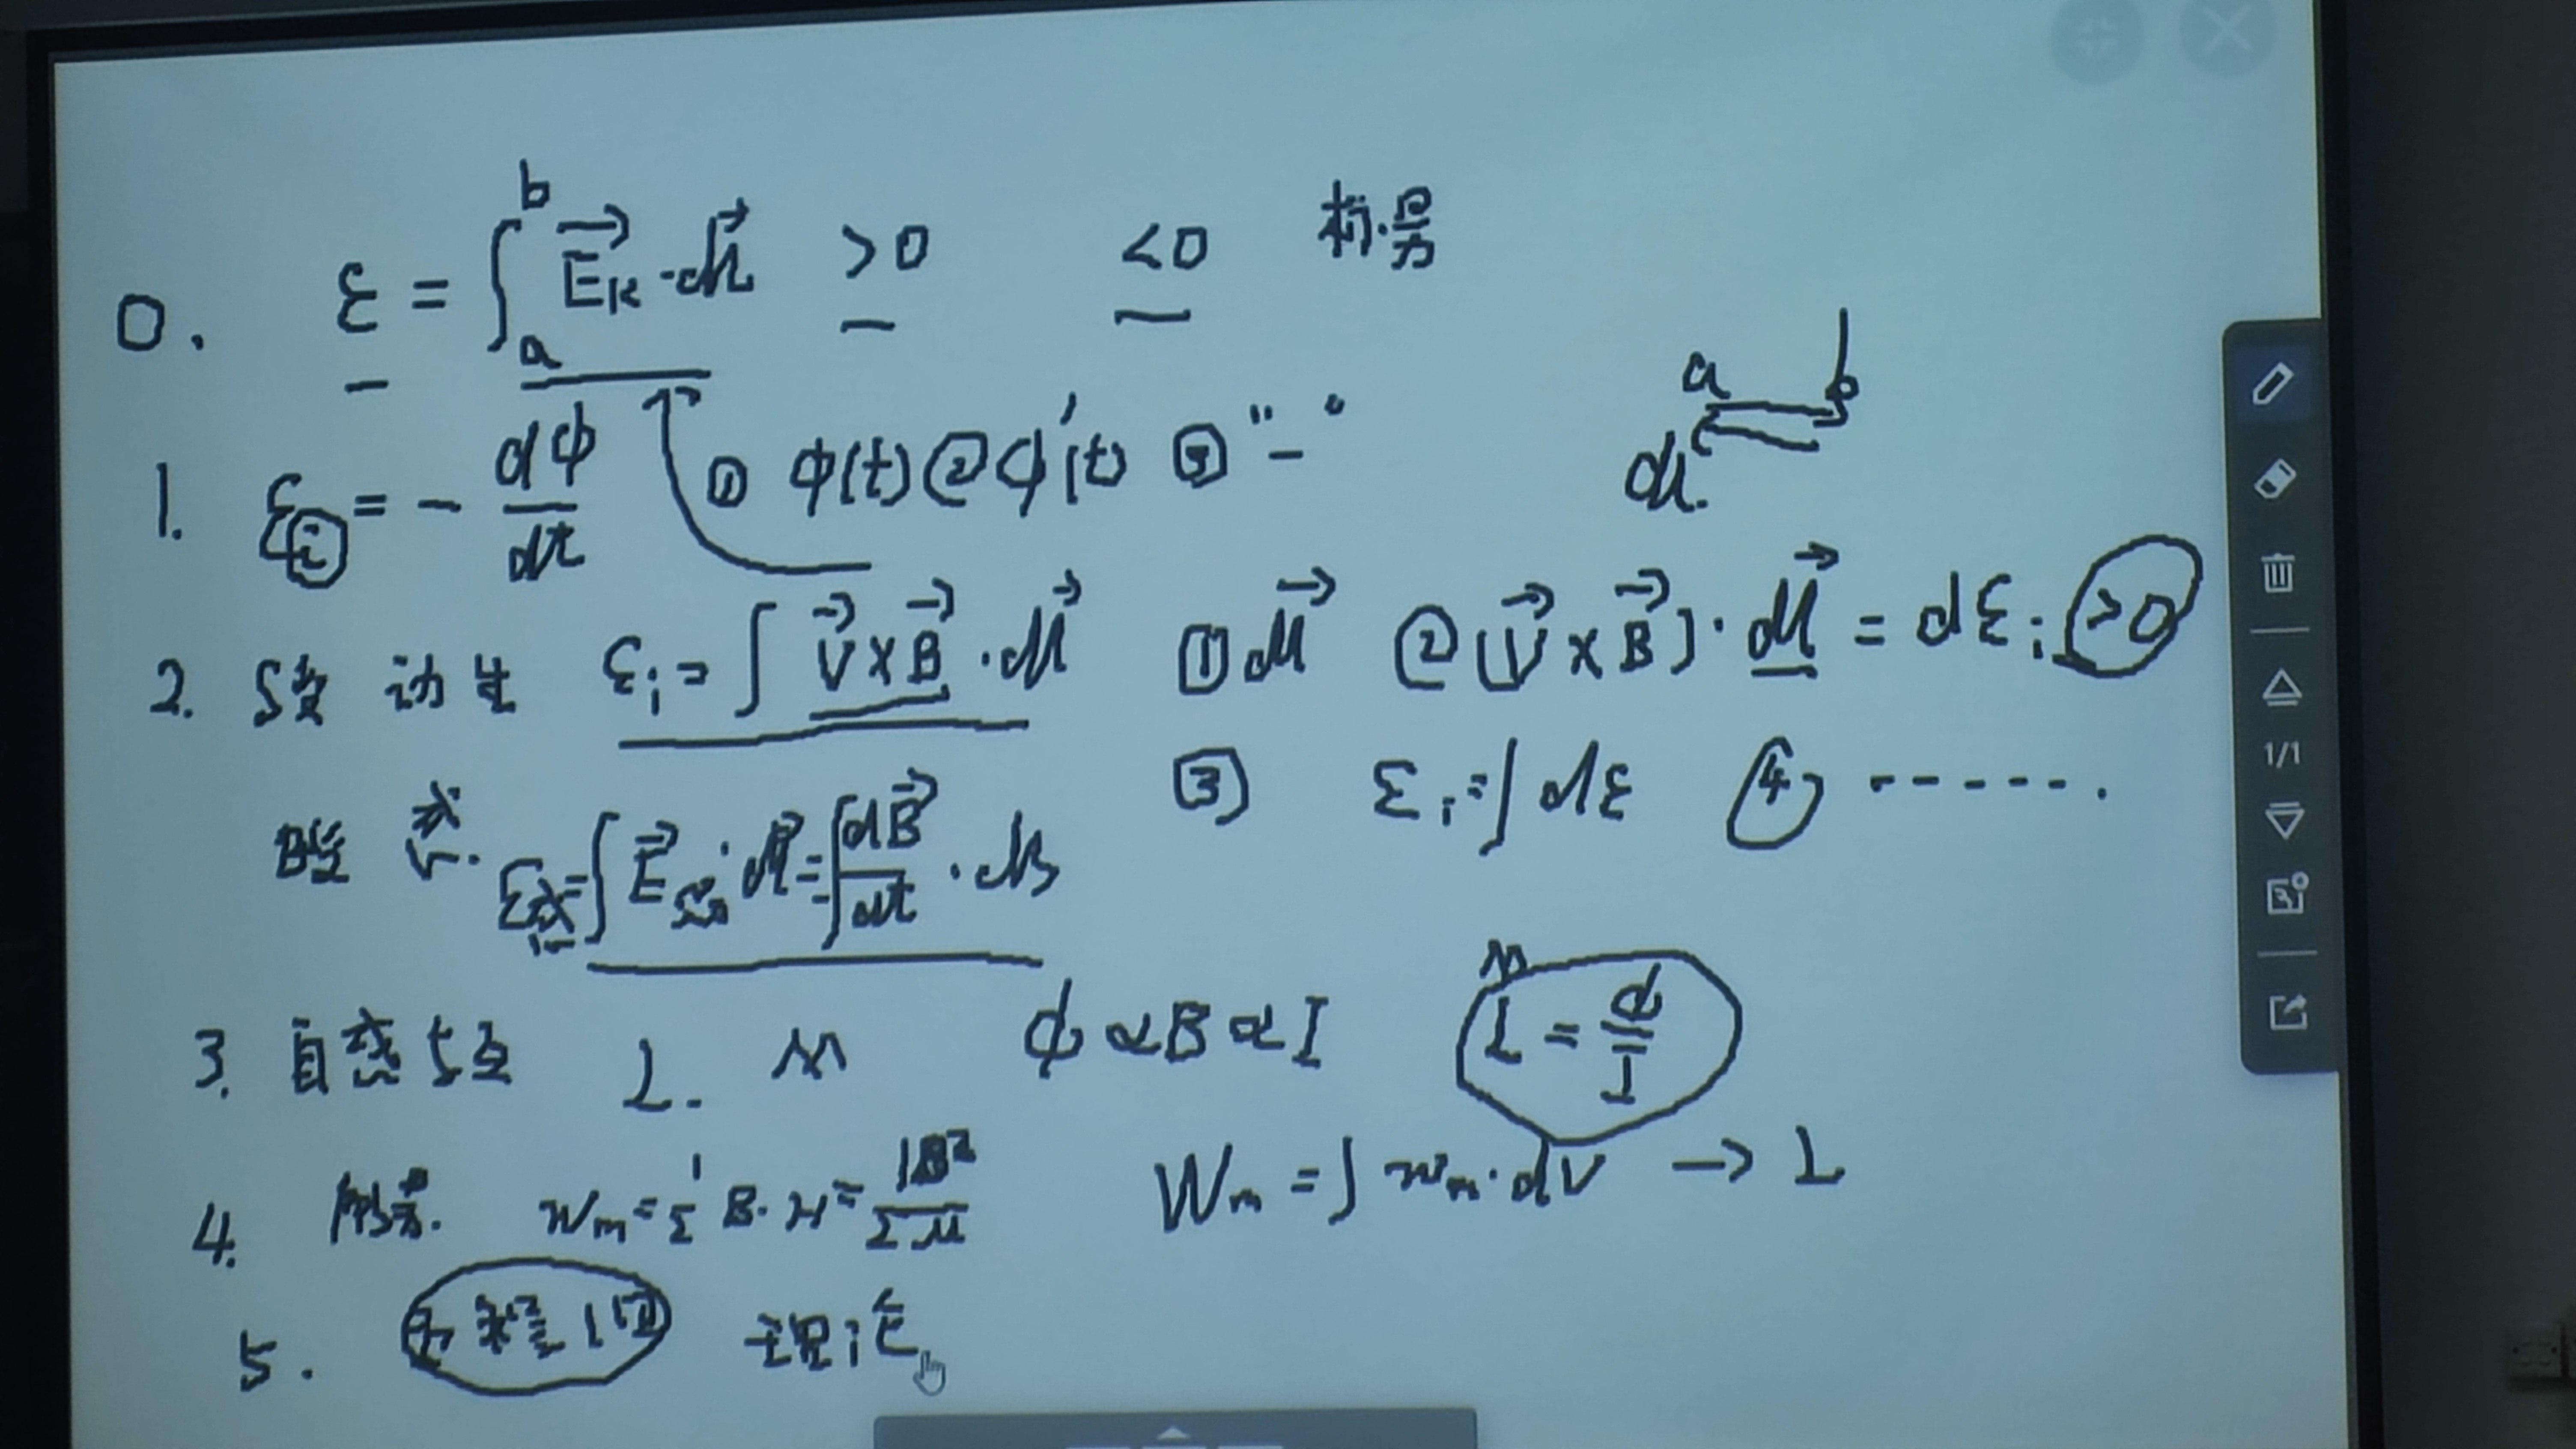 0. ε = ∫ₐᵇ E⃗ₖ · dl⃗ >0 <0
a b
dl
1. εᵢ = - dφ/dt ① φ(t) ② φ'(t) ③ "-"
2. 动生 εᵢ = ∫ v⃗ × B⃗ · dl⃗ ① dl⃗ ② (v⃗ × B⃗) · dl⃗ = dεᵢ >0
③ εᵢ = ∫ dε ④ ------.
感 = ∫ E⃗ · dl⃗ = ∫ dB⃗/dt · ds
3. 自感 互 L. M φ ∝ B ∝ I M L = φ/I
4. wₘ = 1/2 B · H = 1B²/2μ Wₘ = ∫ wₘ · dV → L
5. 理论
1/1